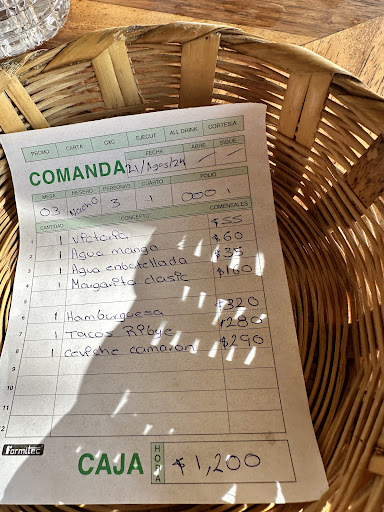 PROMO CARTA CXC EJECUT ALL DRINK CORTESIA
COMANDA FECHA ABRE SIGUE
21/Agos/24
MESA MESERO PERSONAS CUARTO FOLIO
03 Nacho 3 1 0001
CANTIDAD CONCEPTO COMENSALES
1 1 Victoria $55
2 1 Agua mango $60
3 1 Agua enbotellada $35
4 1 Margarita clasic $160
5
6 1 Hamburguesa $320
7 1 Tacos Ribye $280
8 1 Ceviche camaron $290
9
10
11
12
Formitec CAJA HORA $1,200